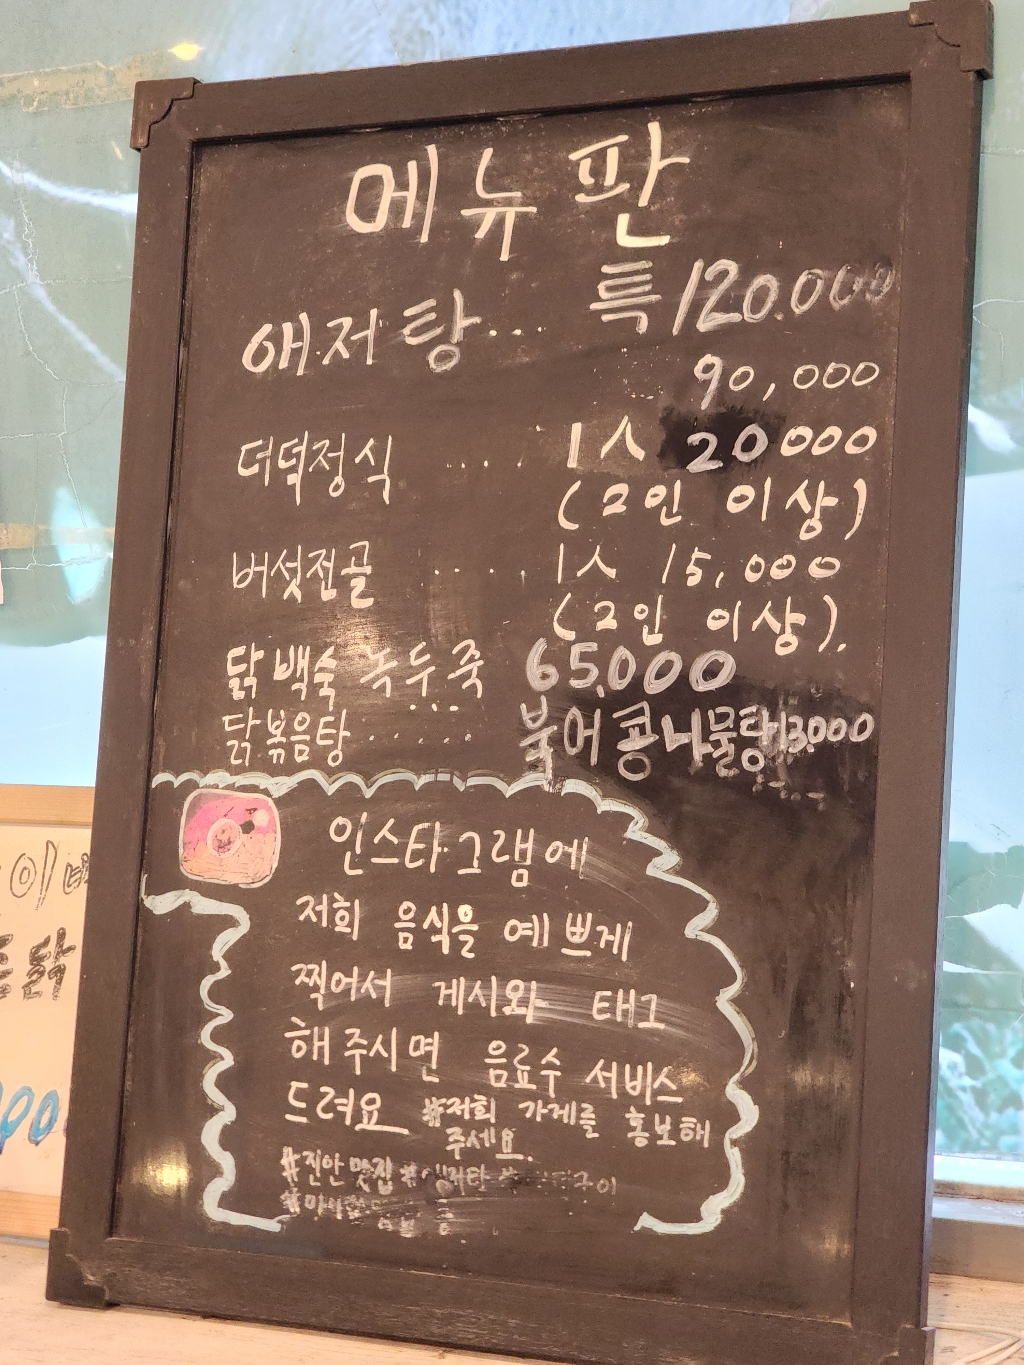 메뉴판
특 120.000
애저탕...
90,000
더덕정식 .... 1人 20000
(2인 이상)
버섯전골 ..... 1人 15,000
(2인 이상).
닭백숙녹두죽 65.000
닭볶음탕 ...... 북어콩나물탕 13.000
인스타그램에
저희 음식을 예쁘게
찍어서 게시와 태그
해주시면 음료수 서비스
드려요 #저희 가게를 홍보해
주세요.
#진안맛집